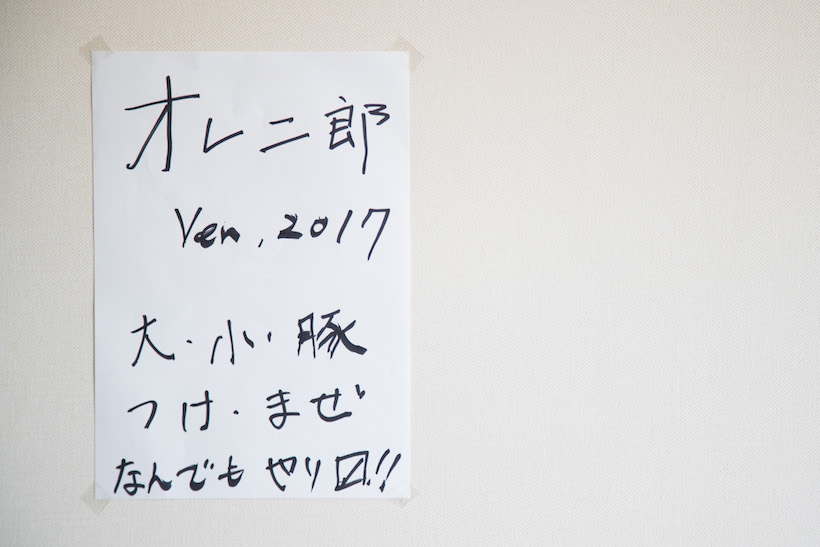 オレ二郎
Ver.2017
大・小・豚
つけ・まぜ
なんでもやり〼!!